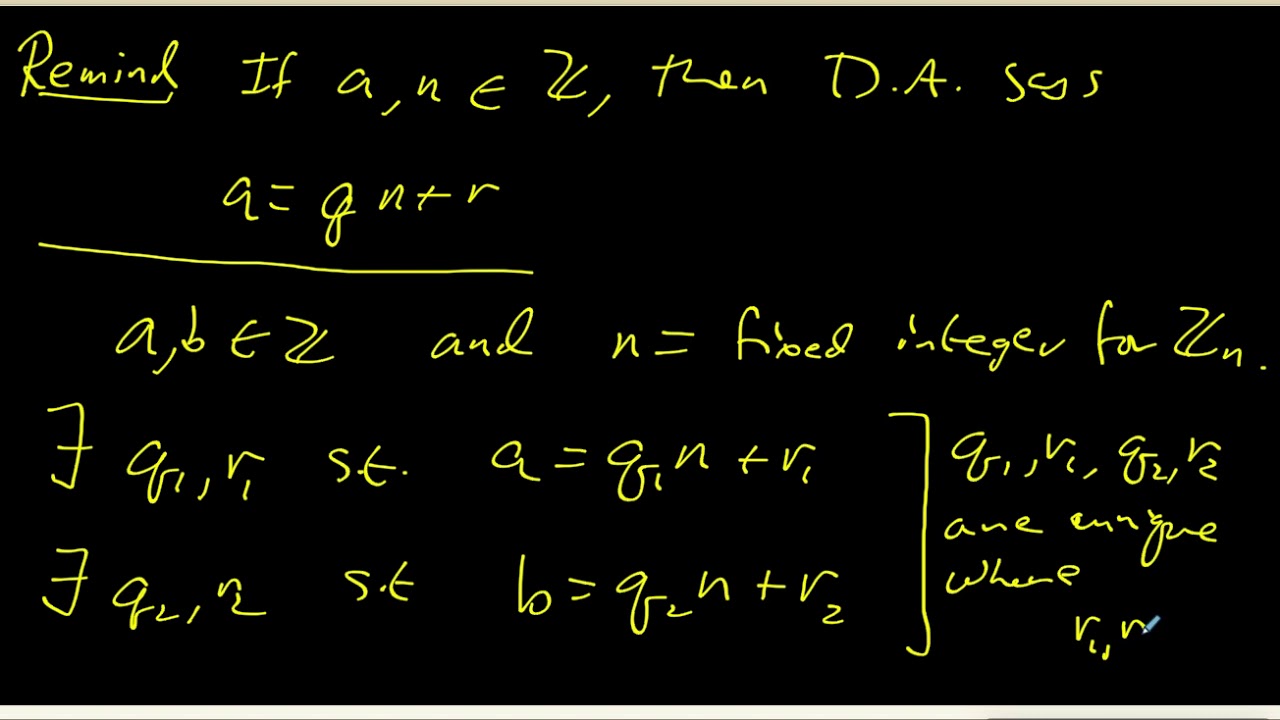 Remind If a, n ∈ ℤ, then D.A. says
a = q n + r
a, b ∈ ℤ and n = fixed integer for ℤₙ.
∃ q₁, r₁ s.t. a = q₁n + r₁
∃ q₂, r₂ s.t b = q₂n + r₂
q₁, r₁, q₂, r₂
are unique
where
r₁, r